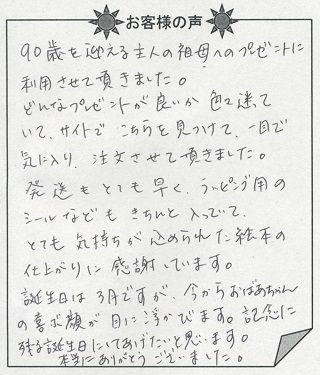 お客様の声
90歳を迎える主人の祖母へのプレゼントに
利用させて頂きました。
どんなプレゼントが良いか色々迷って
いて、サイトでこちらを見つけて、一目で
気に入り、注文させて頂きました。
発送もとても早く、ラッピング用の
シールなどもきちんと入っていて、
とても気持ちが込められた絵本の
仕上がりに感謝しています。
誕生日は3月ですが、今からおばあちゃん
の喜ぶ顔が目に浮かびます。記念に
残る誕生日にしてあげたいと思います。
本当にありがとうございました。